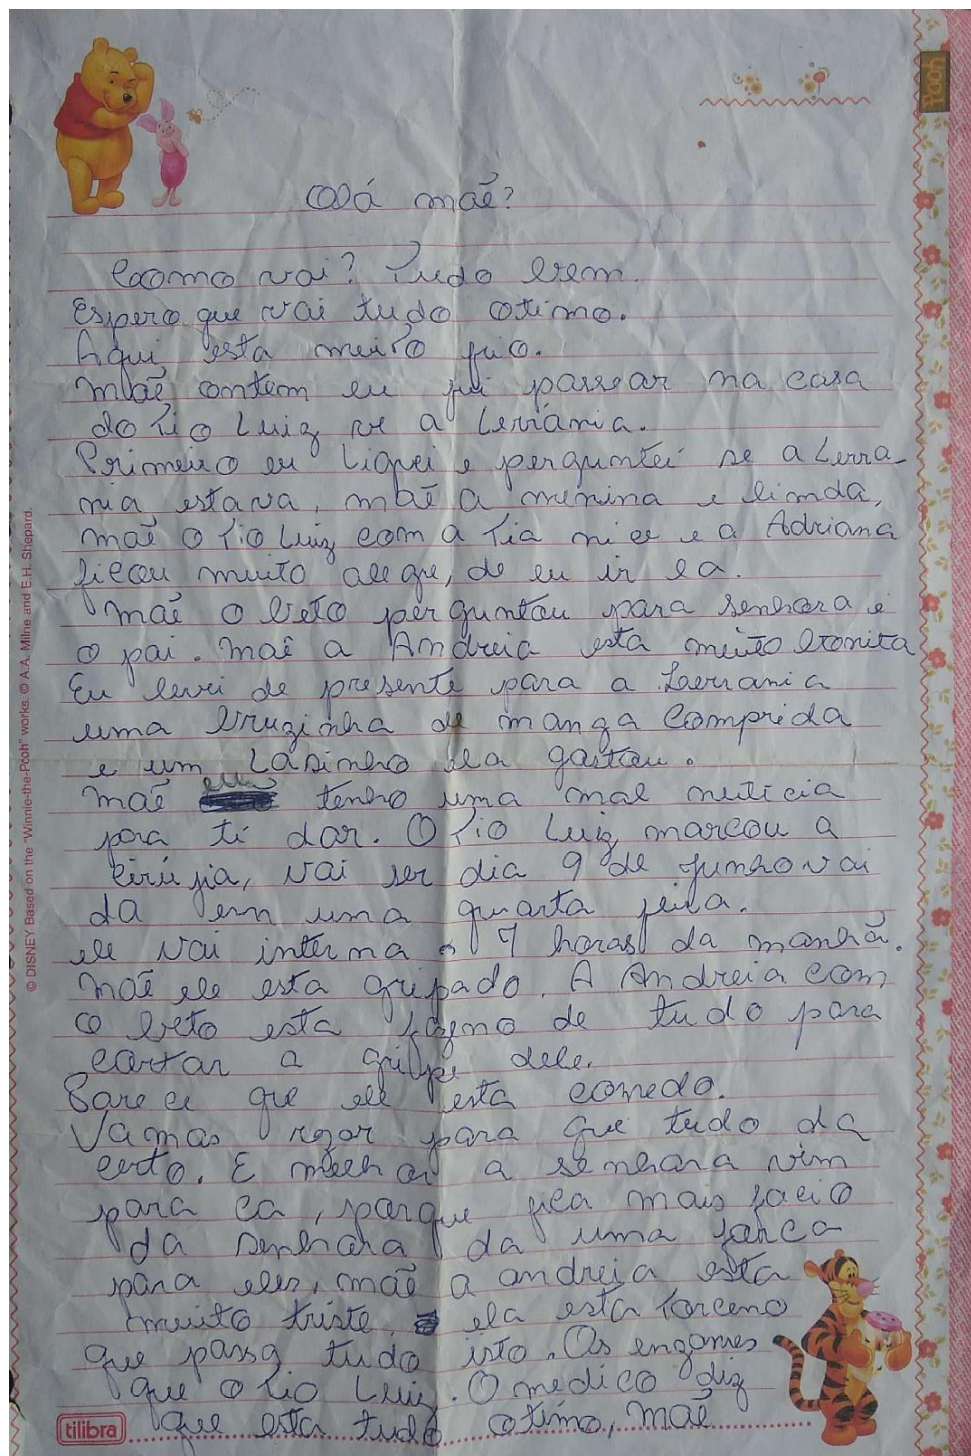 Pooh
Olá maẽ?
Como vai? Tudo bem.
Espero que vai tudo otimo.
Aqui esta muito frio.
Maẽ ontem eu fui passear na casa
do Tio Luiz ve a Lerrânia.
Primeiro eu liguei e perguntei se a Lerra-
nia estava, maẽ a menina e linda,
maẽ o Tio Luiz com a Tia nice e a Adriana
ficou muito alegre, de eu ir la.
Maẽ o beto perguntou para senhora e
o pai. Maẽ a Andreia esta muito bonita
Eu levei de presente para a Laerrania
uma bruzinha de manga comprida
e um Lasinho ela gostou.
Maẽ eu tenho uma mal nuticia
para ti dar. O Tio Luiz marcou a
cirújia, vai ser dia 9 de junho vai
da em uma quarta feira.
ele vai interna as 7 horas da manhã.
Maẽ ele esta gripado. A Andreia com
o beto esta fazeno de tudo para
cortar a gripe dele.
Parece que ele esta comedo.
Vamos rezar para que tudo da
certo. E melhor a senhora vim
para ca, porque fica mais facio
da senhora da uma força
para eles, maẽ a andreia esta
muito triste, ela esta torceno
que passa tudo isto. Os enzames
que o Tio Luiz. O medico diz
que esta tudo otimo, maẽ
tilibra
© DISNEY Based on the "Winnie-the-Pooh" works. © A.A. Milne and E.H. Shepard.